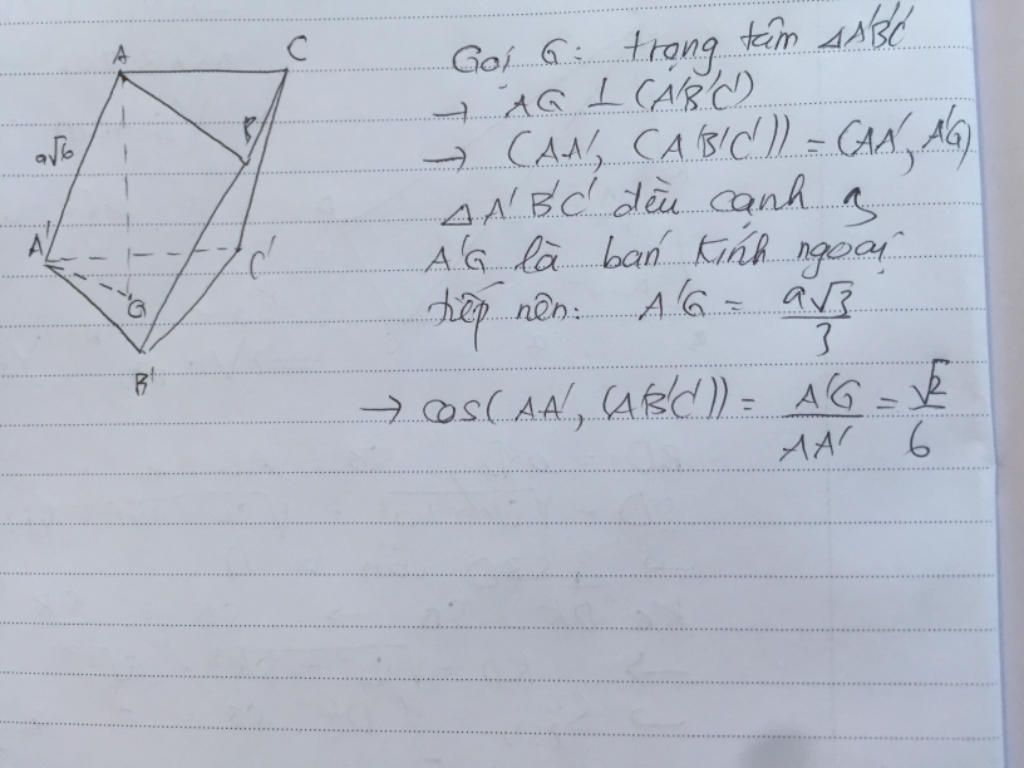 A
C
B
a√6
A'
C'
G
B'
Gọi G: trọng tâm ΔA'B'C'
→ AG ⊥ (A'B'C')
→ (AA', (A'B'C')) = (AA', A'G)
ΔA'B'C' đều cạnh a
A'G là bán kính ngoại
tiếp nên: A'G = a√3/3
→ cos(AA', (A'B'C')) = A'G/AA' = √2/6